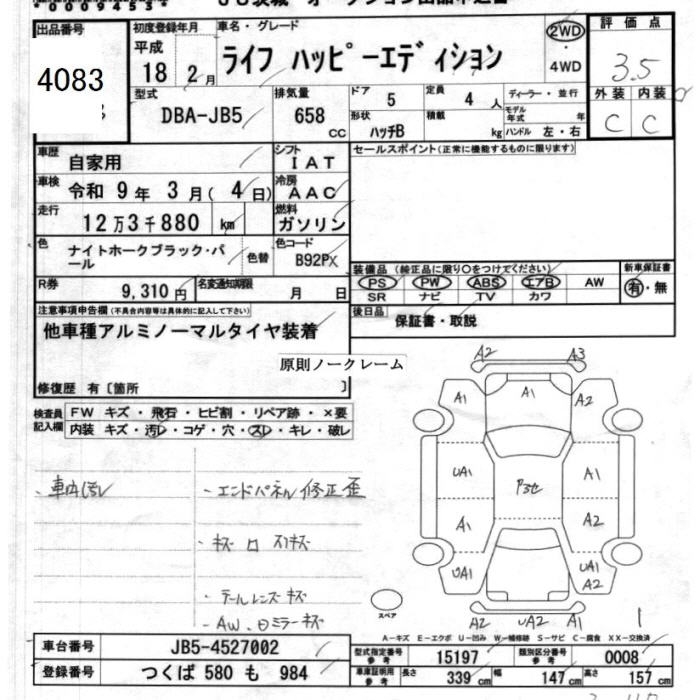 00094534
出品番号
4083
初度登録年月
平成
18 2月
車名・グレード
ライフ ハッピーエディション
2WD
・
4WD
評価点
3.5
型式
DBA-JB5
排気量
658
cc
ドア
5
定員
4 人
形状
ハッチB
積載
kg
ディーラー・並行
モデル
年式 年
ハンドル 左・右
外装
内装
C
C
車歴
自家用
シフト
IAT
セールスポイント(正常に機能するものに限ります)
車検
令和 9年 3月( 4日)
冷房
AAC
走行
12万3千880 km
燃料
ガソリン
色
ナイトホークブラック・パ
ール
色替
色コード
B92PX
R券
9,310円
名変通知期限
月 日
装備品 (純正品に限り○をつけてください)
PS PW ABS エアB AW
SR ナビ TV カワ
新車保証書
有・無
後日品
保証書・取説
注意事項申告欄(不具合内容等は具体的に記入して下さい)
他車種アルミノーマルタイヤ装着
原則ノークレーム
修復歴 有〔箇所 〕
検査員
記入欄
FW キズ・飛石・ヒビ割・リペア跡・×要
内装 キズ・汚レ・コゲ・穴・スレ・キレ・破レ
・車内汚レ
・エンドパネル修正歪
・テールレンズキズ
・AW、ドミラーキズ
A2 A3
A1 A1 A2
UA1 A1
A1 A2
UA1 UA1
A2
A2 UA2 A1
スペア
1
A-キズ E-エクボ U-凹み W-補修跡 S-サビ C-腐食 XX-交換済
車台番号
JB5-4527002
型式指定番号
参考
15197
類別区分番号
参考
0008
登録番号
つくば 580 も 984
車庫証明用
参考
長さ
339 cm
幅
147 cm
高さ
157 cm